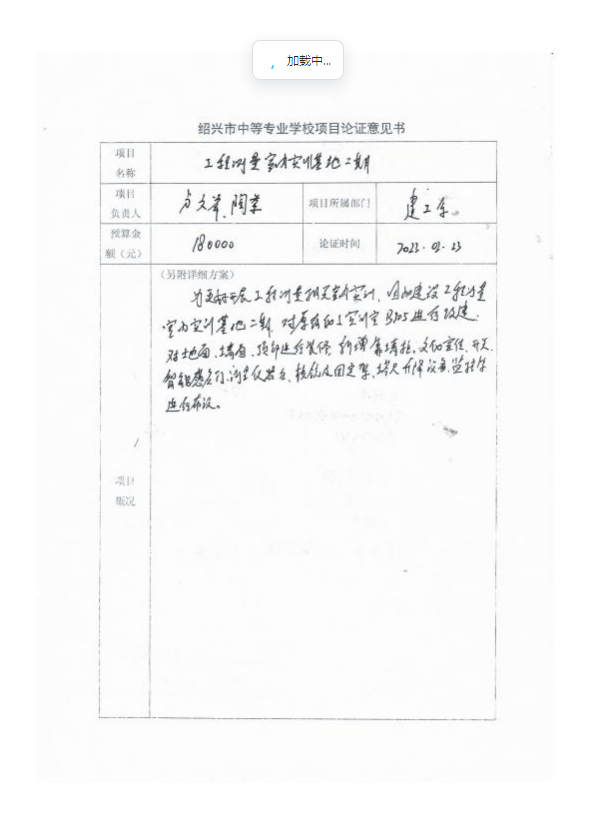 加载中...
绍兴市中等专业学校项目论证意见书
项目名称 工程测量室内实训基地二期
项目负责人 陶业 项目所属部门 建工系
预算金额（元） 180000 论证时间 2023.03.23
（另附详细方案）
为更好开展工程测量相关室内实训，建设工程测量
室内实训基地二期，对原有的实训室B305进行改建：
对地面、墙面、顶部进行装修，新增
智能感应门、及固定架、升降设备、监控等
进行布设。
项目概况